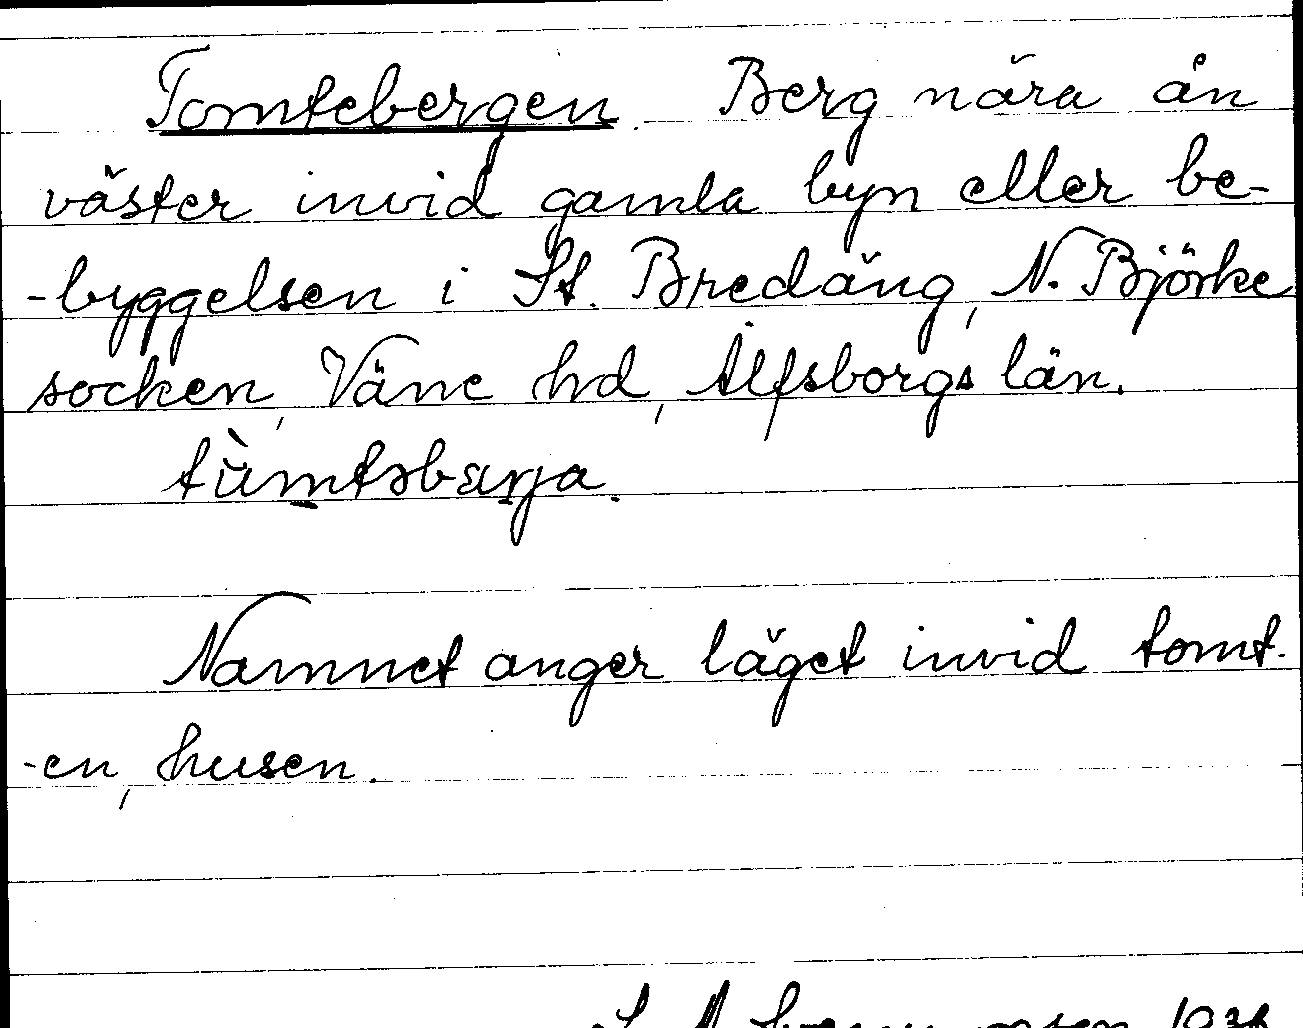 Tomtebergen. Berg nära ån
väster invid gamla byn eller be-
-byggelsen i St. Bredäng, N. Björke
socken, Väne hd, Älfsborgs län.
tùmtəbærja.
Namnet anger läget invid tomt-
-en, husen.